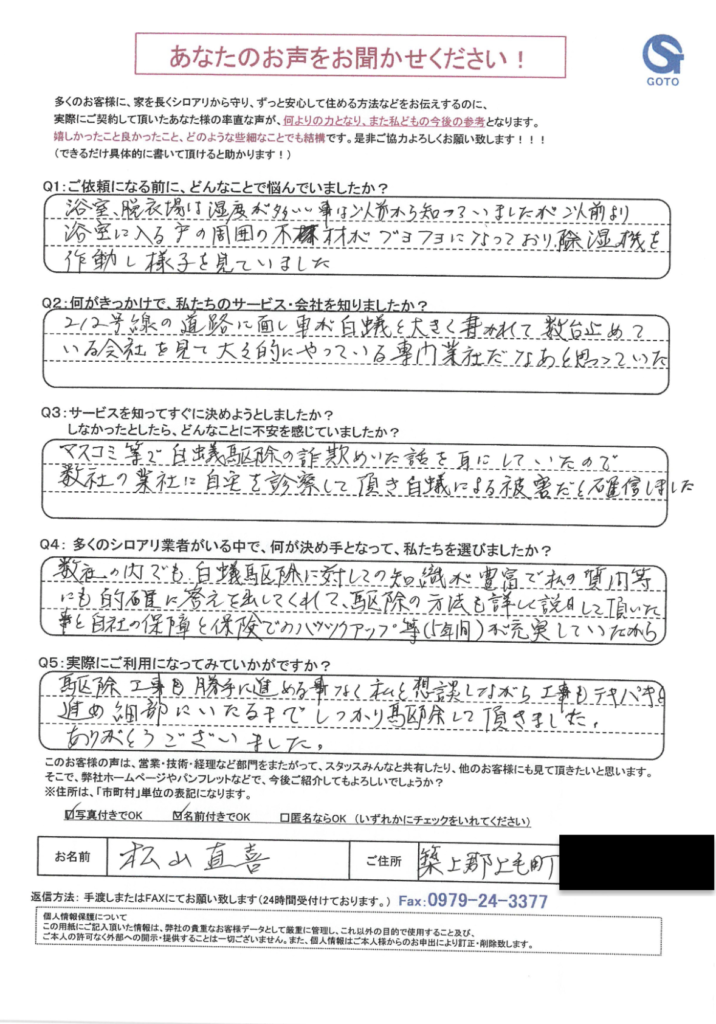 あなたのお声をお聞かせください！
GOTO
多くのお客様に、家を長くシロアリから守り、ずっと安心して住める方法などをお伝えするのに、
実際にご契約して頂いたあなた様の率直な声が、何よりの力となり、また私どもの今後の参考となります。
嬉しかったこと良かったこと、どのような些細なことでも結構です。是非ご協力よろしくお願い致します！！！
（できるだけ具体的に書いて頂けると助かります！）
Q1：ご依頼になる前に、どんなことで悩んでいましたか？
浴室、脱衣場は湿度が多い事は以前から知っていましたが以前より
浴室に入る戸の周囲の木材がブヨブヨになっており、除湿機を
作動し様子を見ていました
Q2：何がきっかけで、私たちのサービス・会社を知りましたか？
212号線の道路に面し車が白蟻と大きく書かれて数台止めて
いる会社を見て大々的にやっている専門業社だなあと思っていた
Q3：サービスを知ってすぐに決めようとしましたか？
しなかったとしたら、どんなことに不安を感じていましたか？
マスコミ等で白蟻駆除の詐欺めいた話を耳にしていたので
数社の業社に自宅を診察して頂き白蟻による被害だと確信しました
Q4： 多くのシロアリ業者がいる中で、何が決め手となって、私たちを選びましたか？
数社の内でも白蟻駆除に対しての知識が豊富で私の質問等
にも的確に答えを出してくれて、駆除の方法も詳しく説明して頂いた
事と自社の保障と保険でのバックアップ等(15年間)が充実していたから
Q5：実際にご利用になってみていかがですか？
駆除工事も勝手に進める事なく私と想談しながら工事もテキパキと
進め細部にいたるまでしっかり駆除して頂きました。
ありがとうございました。
このお客様の声は、営業・技術・経理など部門をまたがって、スタッスみんなと共有したり、他のお客様にも見て頂きたいと思います。
そこで、弊社ホームページやパンフレットなどで、今後ご紹介してもよろしいでしょうか？
※住所は、「市町村」単位の表記になります。
☑写真付きでOK ☑名前付きでOK □匿名ならOK （いずれかにチェックをいれてください）
お名前 松山直喜 ご住所 築上郡上毛町
返信方法： 手渡しまたはFAXにてお願い致します（24時間受付けております。） Fax：0979-24-3377
個人情報保護について
この用紙にご記入頂いた情報は、弊社の貴重なお客様データとして厳重に管理し、これ以外の目的で使用すること及び、
ご本人の許可なく外部への開示・提供することは一切ございません。また、個人情報はご本人様からのお申出により訂正・削除致します。